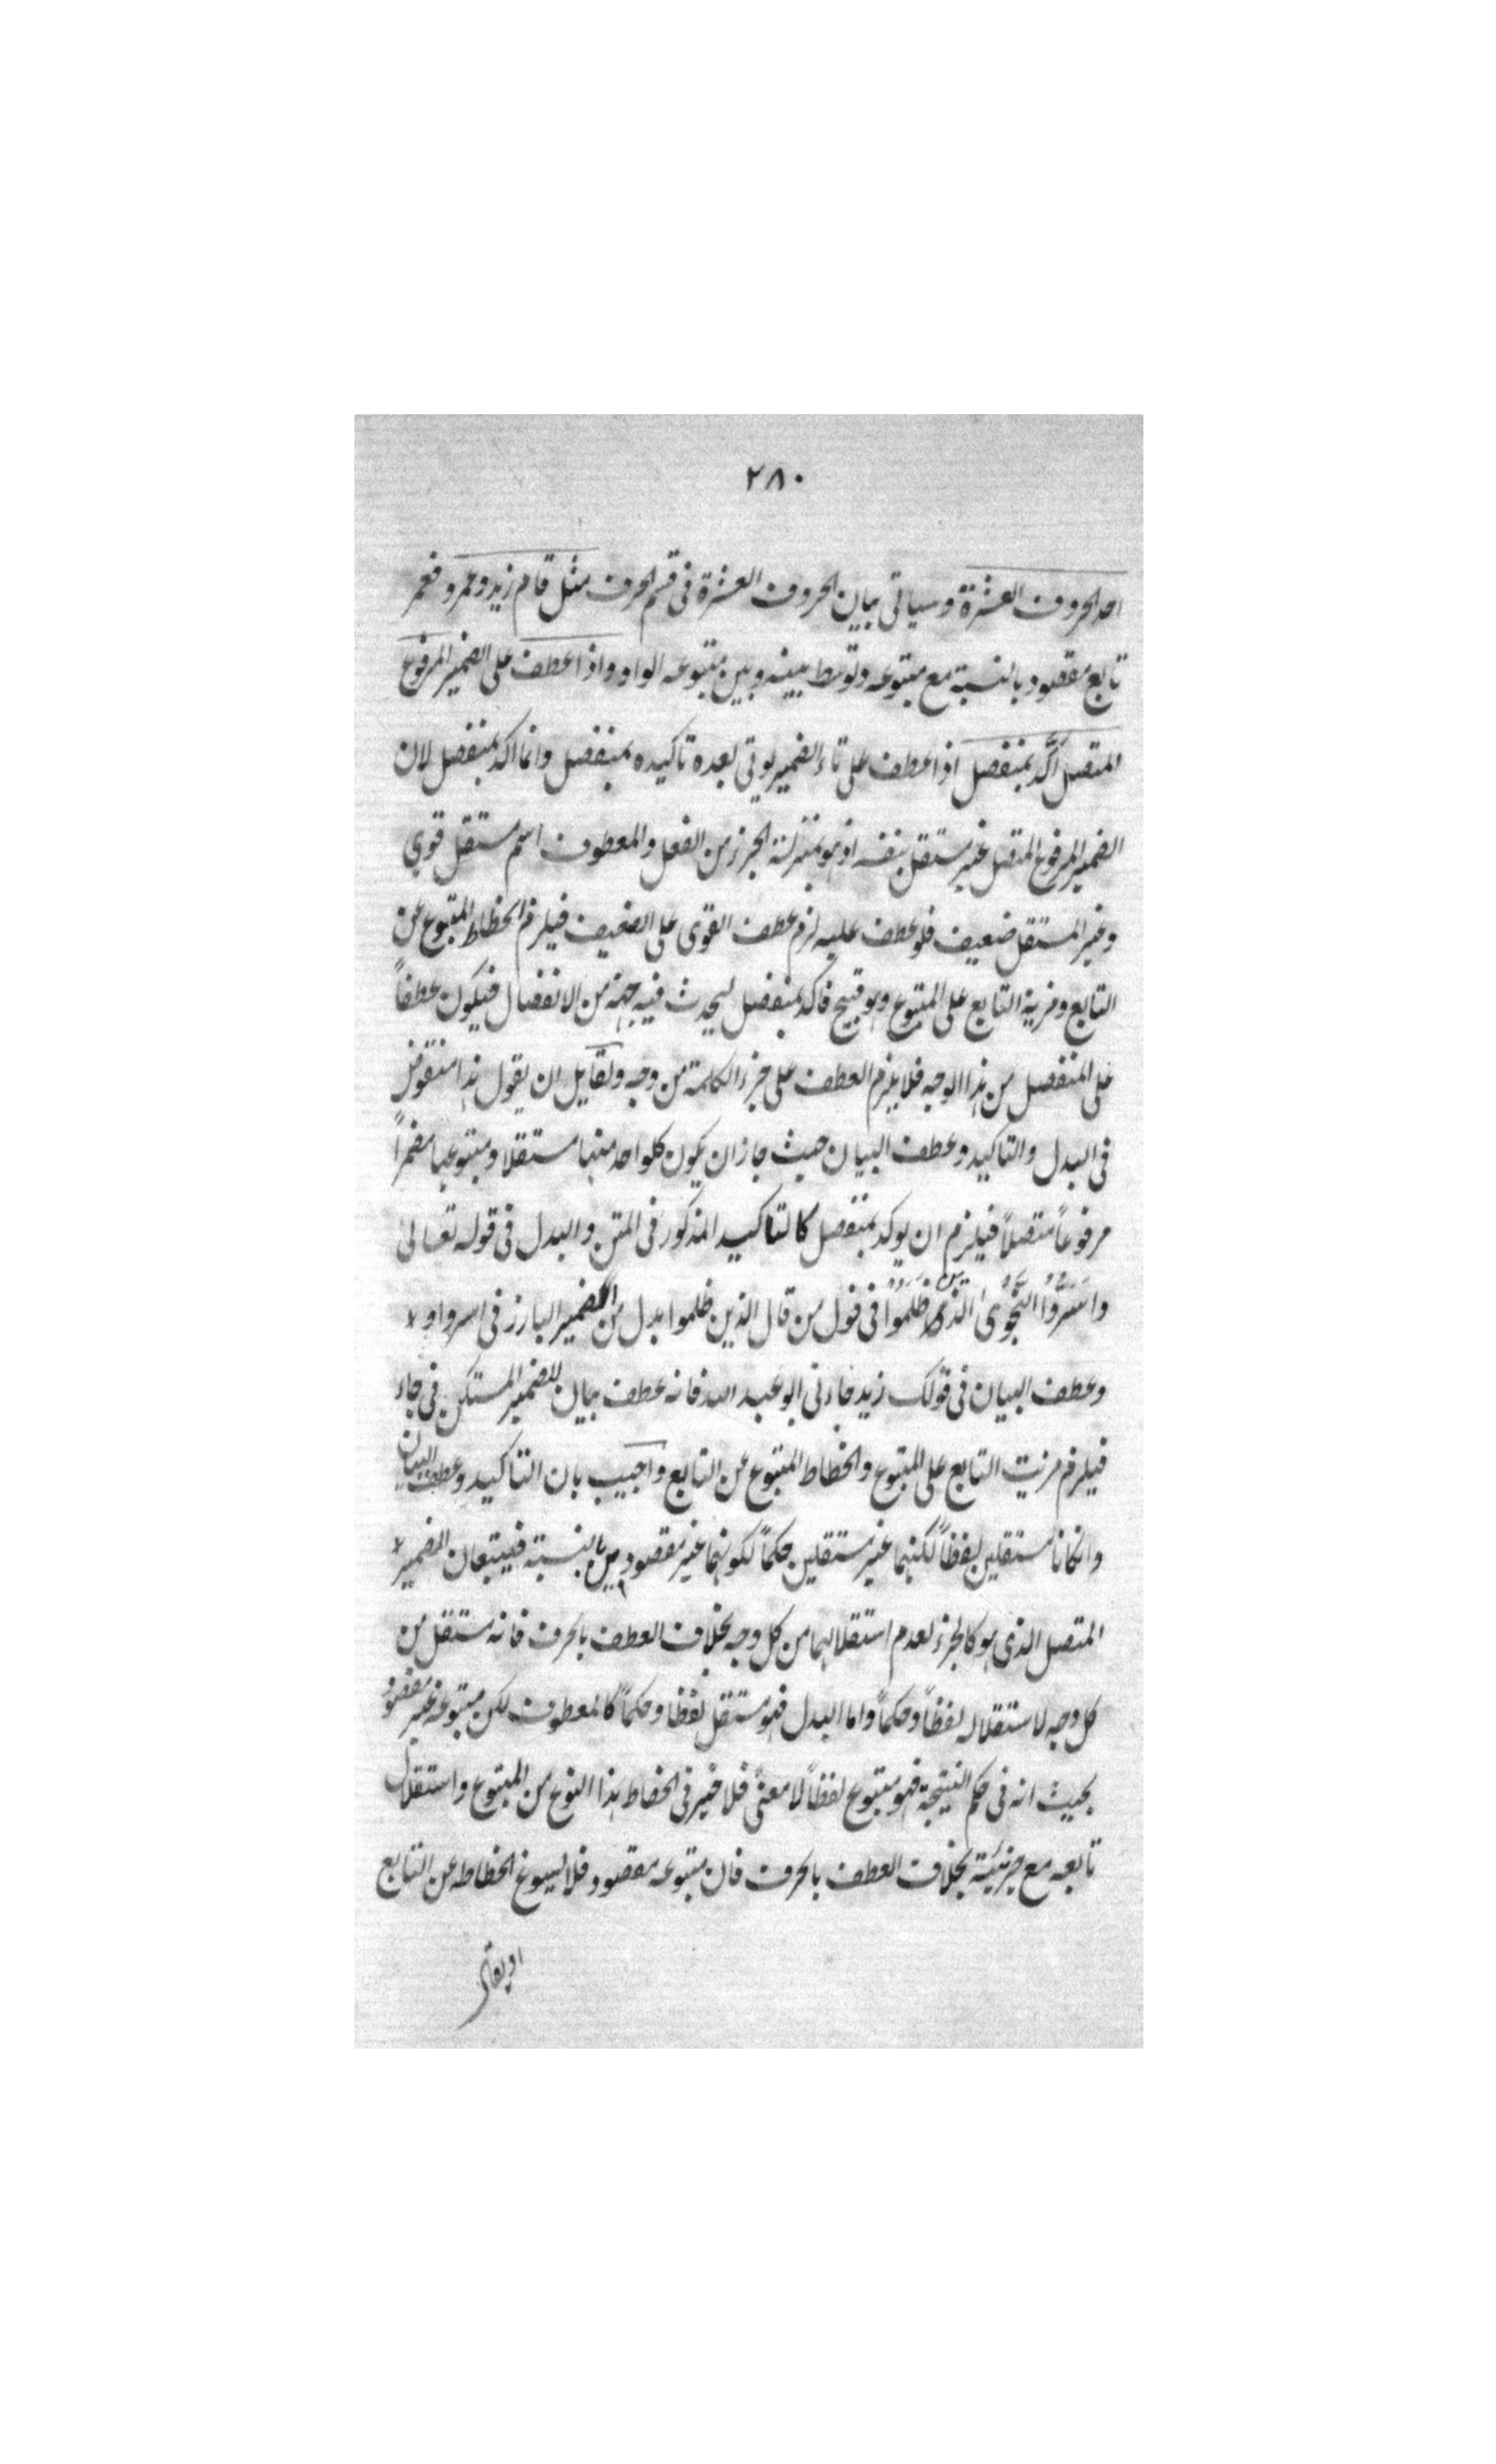 ٢٨٠
احد الحروف العشرة وسياتى بيان الحروف العشرة فى قسم الحرف مثل قام زيد وعمرو فعمر
تابع مقصود بالنسبة مع متبوعه وتوسط بينه وبين متبوعه الواو واذا عطف على الضمير المرفوع
المتصل اكّد بمنفصل اذا عطف على تاء الضمير يوتى بعده تاكيده بمنفصل وانما اكد بمنفصل لان
الضمير المرفوع المتصل غير مستقل بنفسه اذ هو بمنزلة الجزء من الفعل والمعطوف اسم مستقل قوي
وغير المستقل ضعيف فلو عطف عليه لزم عطف القوى على الضعيف فيلزم انحطاط المتبوع عن
التابع ومزية التابع على المتبوع وهو قبيح فاكد بمنفصل ليحدث فيه جهة من الانفصال فيكون عطفاً
على المنفصل من هذا الوجه فلا يلزم العطف على جزء الكلمة من وجه ولقايل ان يقول هذا منقوض
فى البدل والتاكيد وعطف البيان حيث جاز ان يكون كلواحد منها مستقلا ومتبوعها مضمراً
مرفوعاً متصلاً فيلزم ان يوكد بمنفصل كالتاكيد المذكور فى المتن والبدل فى قوله تعالى
واَسَرُّوا النَّجْوىَ الَّذين ظَلَمُوْا فى قول من قال الذين ظلموا بدل من الضمير البارز فى اسروا ولا
وعطف البيان فى قولك زيد جاءنى ابو عبد الله فانه عطف بيان للضمير المستكن فى جاء
فيلزم مزيت التابع على المتبوع وانحطاط المتبوع عن التابع واجيب بان التاكيد وعطف البيان
وانكانا مستقلين لفظاً لكنهما غير مستقلين حكماً لكونهما غير مقصودين بالنسبة فيتبعان الضمير لا
المتصل الذى هو كالجزء لعدم استقلالهما من كل وجه بخلاف العطف بالحرف فانه مستقل من
كل وجه لاستقلاله لفظاً وحكماً واما البدل فهو مستقل لفظا وحكماً كالمعطوف لكن متبوعه غير مقصود
بحيث انه فى حكم النتيجة فهو متبوع لفظاً لا معنىً فلا ضير فى انحطاط هذا النوع من المتبوع واستقلال
تابعه مع جزئيته بخلاف العطف بالحرف فان متبوعه مقصود فلا يسوغ انحطاطه عن التابع
او يقال